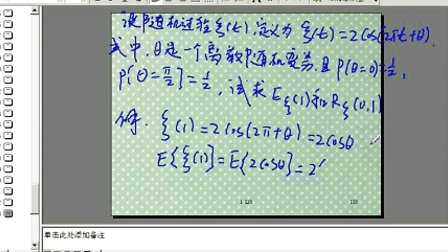 设随机过程ξ(t),定义为 ξ(t)=2cos(2πt+θ),
式中,θ是一个离散随机变量,且 P(θ=0)=½,
P{θ=π/2}=½,试求Eξ(1)和Rξ(0,1)
解. ξ(1)=2cos(2π+θ)=2cosθ
E{ξ(1)}=E{2cosθ}=2'
1-120 133
单击此处添加备注